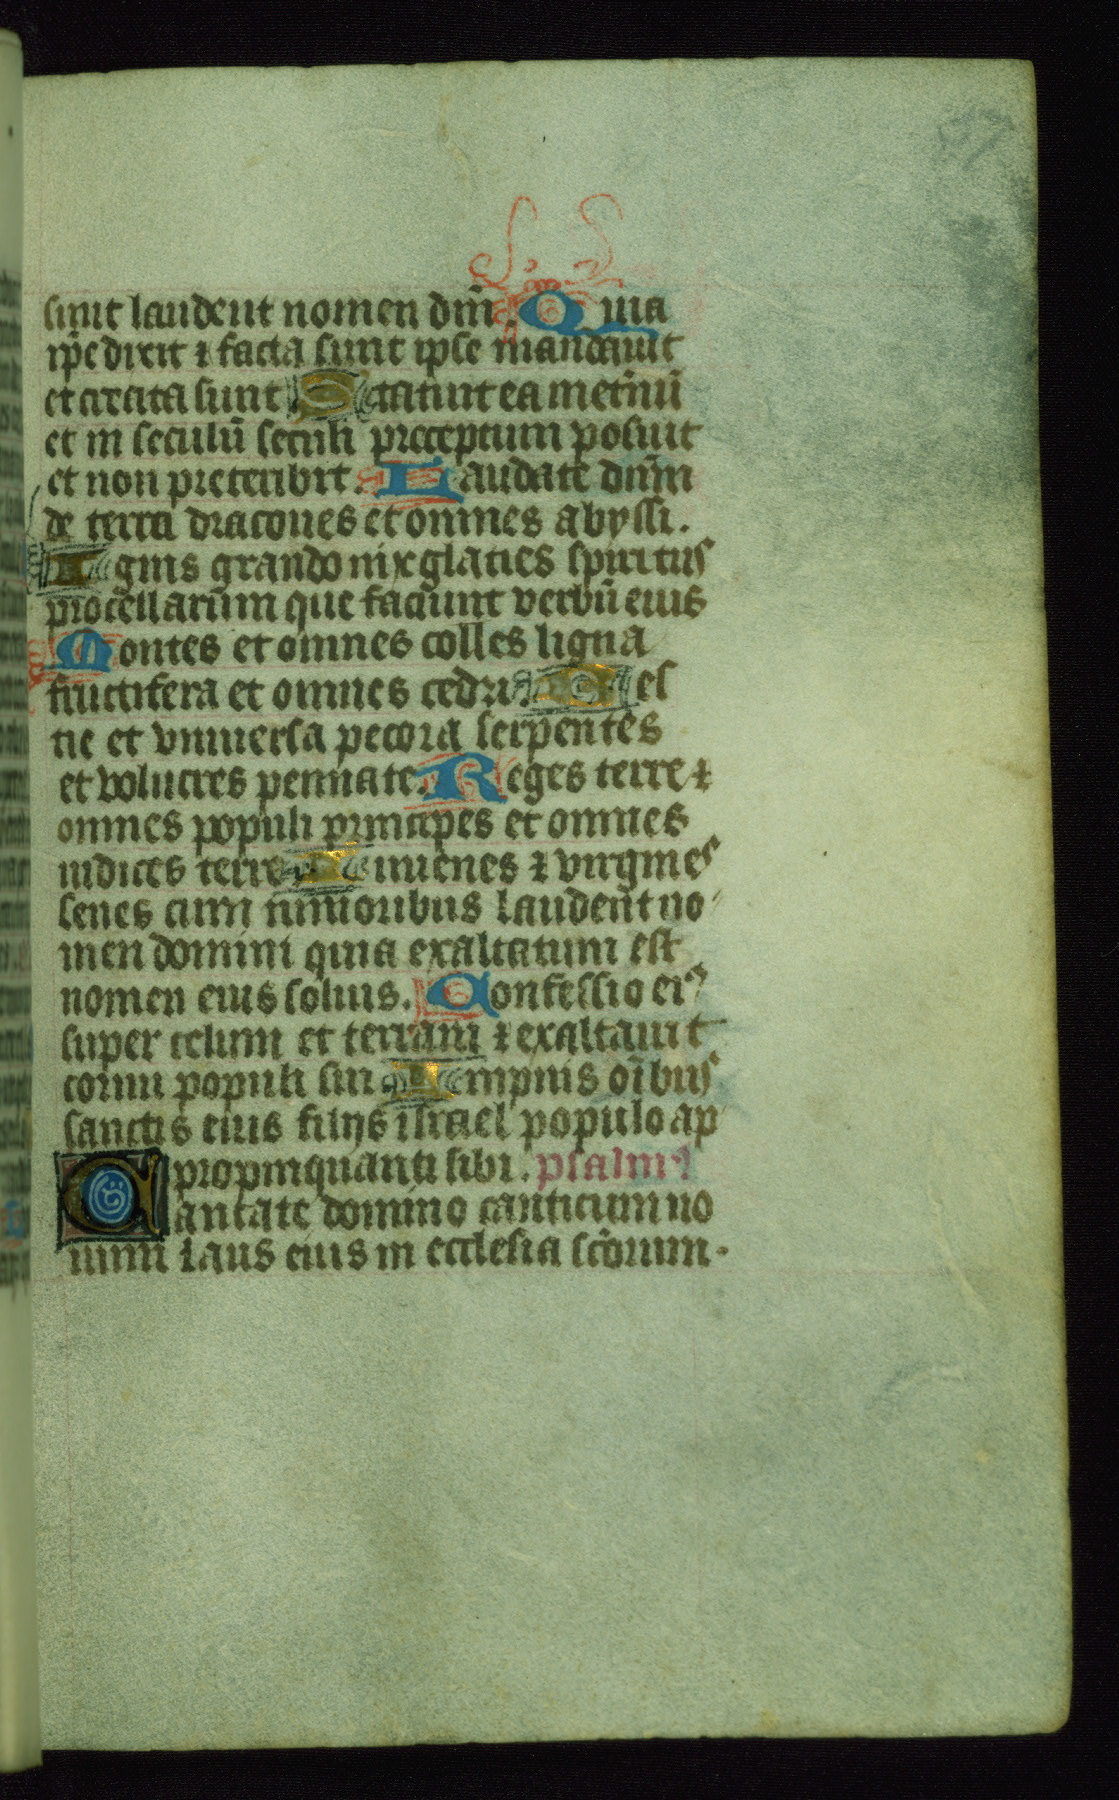 sunt laudent nomen dn̄i. Quia
ip̄e dixit ⁊ facta sunt ipse mandauit
et creata sunt Statuit ea in et̄nū
et in seculū seculi preceptum posuit
et non preteribit. Laudate dn̄m
de terra dracones et omnes abyssi.
Ignis grando nix glacies spiritus
procellarum que faciunt verbū eius
Montes et omnes colles ligna
fructifera et omnes cedri. Bes
tie et vniuersa pecora serpentes
et volucres pennate. Reges terre ⁊
omnes populi principes et omnes
iudices terre Iuuenes ⁊ virgines
senes cum iunioribus laudent no
men domini quia exaltatum est
nomen eius solius. Confessio eiꝰ
super celum et terram ⁊ exaltauit
cornu populi sui Ympnis oībus
sanctis eius filijs israel populo ap
propinquanti sibi. psalmꝰ
Cantate domino canticum no
uum laus eius in ecclesia sc̄orum.